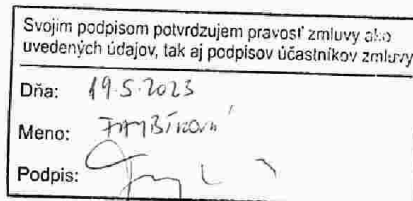 Svojim podpisom potvrdzujem pravosť zmluvy ako
uvedených údajov, tak aj podpisov účastníkov zmluvy
Dňa: 19.5.2023
Meno:
Podpis: